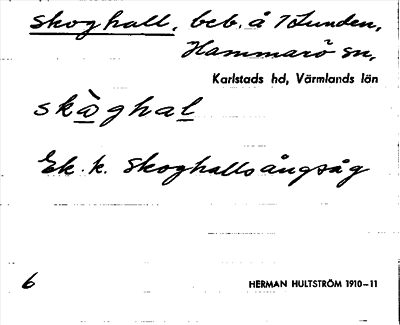 Skoghall, beb. å 7 Lunden,
Hammarö sn,
Karlstads hd, Värmlands län
skàghal
Ek. k. Skoghallsångsåg
6 HERMAN HULTSTRÖM 1910–11